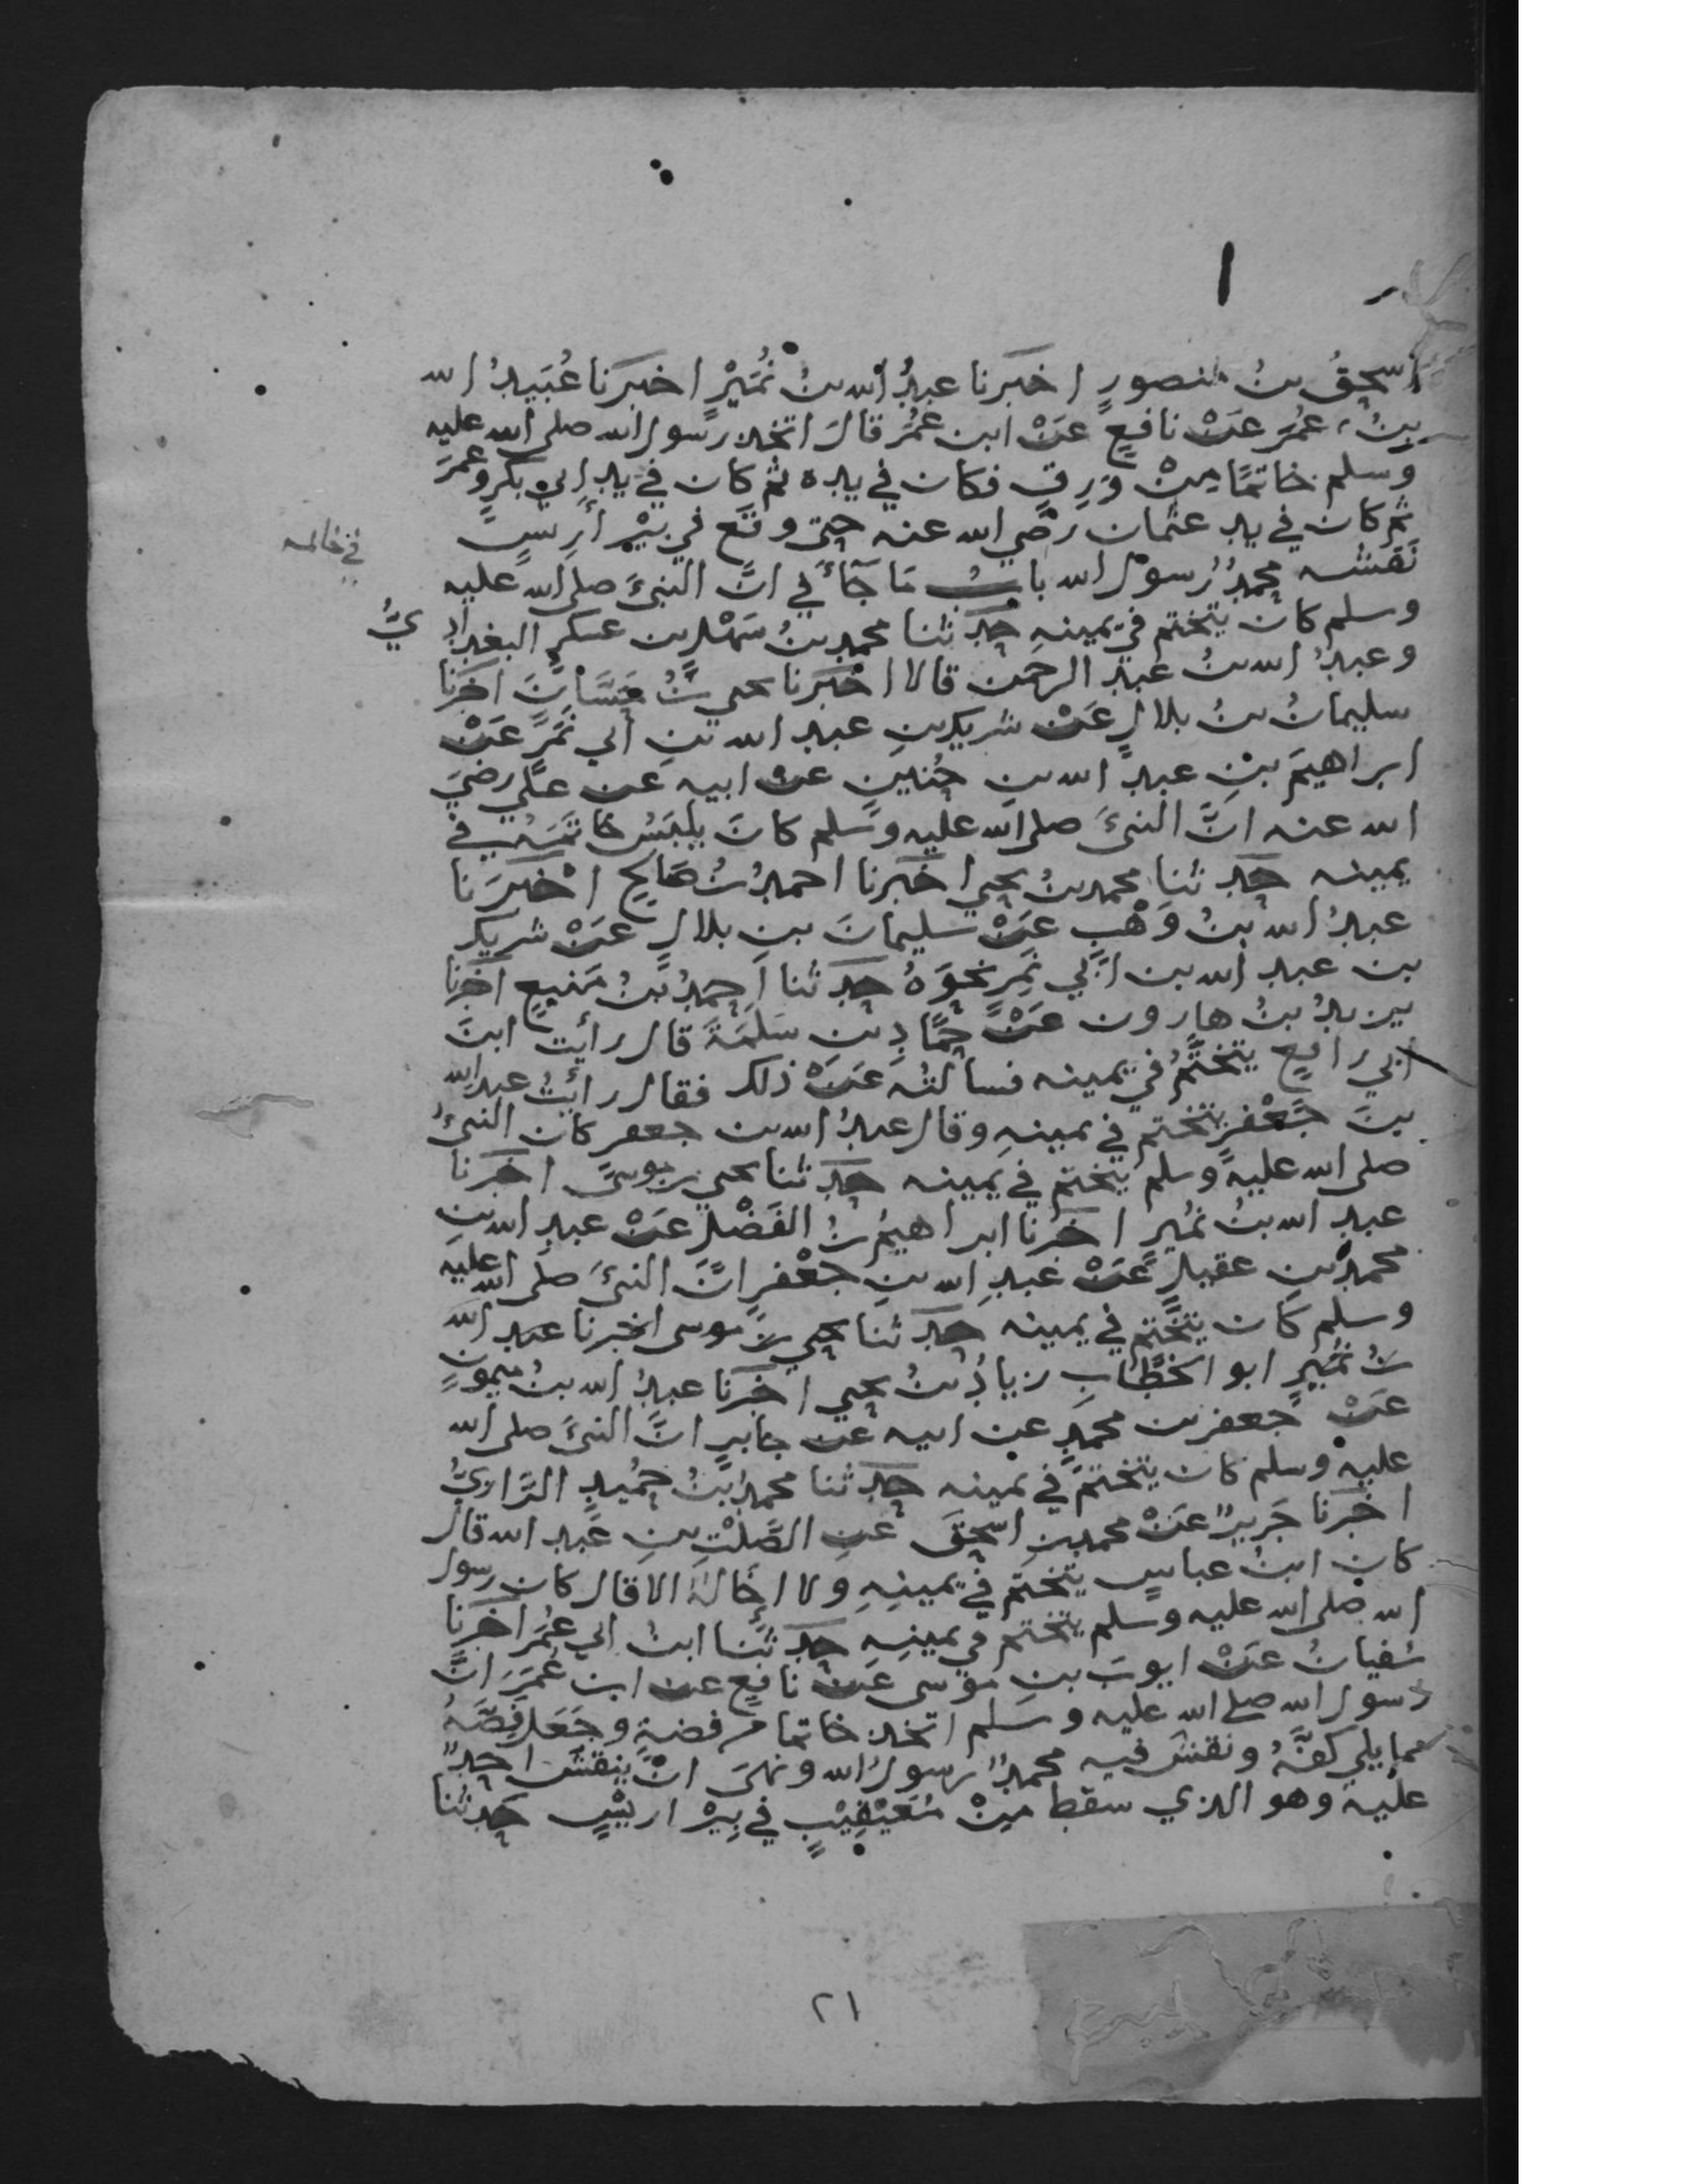 اسحق بنُ منصورٍ اخبَرنا عبدُ الله بنُ نُمَيْرٍ اخبرَنا عُبَيدُ الله
بنُ عُمَرَ عَنْ نافعٍ عَنْ ابن عمُرَ قالَ اتخذ رَسول الله صلى الله عليه
وسلم خاتمًا مِنْ وَرِقٍ فكان في يده ثم كان في يدِ ابي بكرٍ وعمرَ
ثم كان في يد عثمان رضي الله عنه حتى وقع في بيْرِ أرِيسٍ
نَقشُه محمدٌ رسولُ الله بابُ مَا جَآءَ في انَّ النبيَّ صلى الله عليه
وسلم كان يتختم في يمينهِ حَدثنا محمد بنُ سَهْلِ بن عسكرٍ البغدادِيُّ
وعبدُ الله بنُ عبدِ الرحمن قالا اخبَرنا يحيى بنُ حَسَّانَ اخبَرنا
سليمانُ بنُ بلالٍ عَنْ شريكِ بنِ عبد الله بنِ أبي نَمِرٍ عَنْ
ابراهيمَ بْنِ عبدِ الله بنِ حُنينٍ عن ابيه عن عليٍّ رضيَ
الله عنه انَّ النبيَّ صلى الله عليه وسلم كانَ يلبَسُ خاتمَهُ في
يمينه حَدثنا محمد بنُ يحيى اخبَرنا احمدُ بنُ صَالحٍ اخبَرَنا
عبدُ الله بنُ وَهْبٍ عَنْ سليمانَ بنِ بلالٍ عَنْ شريك
بن عبد الله بن ابي نَمِرٍ نحوَهُ حَدثنا احمدُ بنُ مَنيعٍ اخبَرنا
يزيدُ بنُ هارون عَنْ حَمَّادِ بنِ سَلَمَةَ قال رأيت ابنَ
ابي رافعٍ يتختَّمُ في يمينه فسألتُه عَنْ ذلك فقال رأيتُ عبد الله
بنَ جَعْفرٍ يتختم في يمينهِ وقال عبدُ الله بن جعفر كان النبيُّ
صلى الله عليه وسلم يتختم في يمينه حَدثنا يحيى بن موسى اخبَرنا
عبد الله بنُ نُمَيرٍ اخبَرنا ابراهيمُ بنُ الفَضْلِ عَنْ عبدِ الله بنِ
محمد بنِ عقيلٍ عَنْ عبدِ الله بنِ جَعْفرٍ انَّ النبيَّ صلى الله عليه
وسلم كان يتختَّم في يمينه حَدثنا يحيى بن موسى اخبرنا عبد الله
بنُ نُمَيرٍ ابو الخطَّابِ زيادُ بنُ يحيى اخبَرنا عبدُ الله بنُ ميمونٍ
عَنْ جعفر بن محمدٍ عن ابيه عن جابرٍ انَّ النبيَّ صلى الله
عليه وسلم كان يتختمُ في يمينه حَدثنا محمد بنُ حُمَيدٍ الرَّازِيُّ
اخبَرنا جَريرٌ عَنْ محمد بنِ اسحقَ عنِ الصَّلْتِ بنِ عَبد الله قال
كان ابنُ عباسٍ يتختم في يمينِهِ ولا إخَالُهُ الا قال كان رسول
الله صلى الله عليه وسلم يتختم في يمينِهِ حَدثنا ابنُ ابي عُمَرَ اخبَرنا
سُفيانُ عَنْ ايوبَ بنِ موسى عَنْ نافعٍ عن ابن عُمَرَ انَّ
رسول الله صلى الله عليه وسلم اتخذ خاتما من فضةٍ وجَعَل فَصَّهُ
مما يلي كفَّهُ ونقش فيه محمدٌ رسولُ الله ونهىَ انْ ينقشَ احدٌ
عليه وهو الذي سقط مِنْ مُعَيْقِيْبٍ في بِيْرِ اريسٍ حَدثنا
٢١